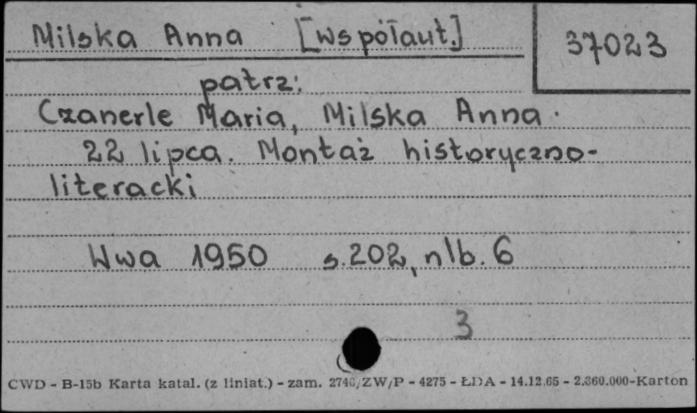 Milska Anna [współaut.]
37023
patrz:
Czanerle Maria, Milska Anna.
22 lipca. Montaż historyczno-
literacki
Wwa 1950 s. 202, nlb. 6
3
CWD - B-15b Karta katal. (z liniat.) - zam. 2746/ZW/P - 4275 - ŁDA - 14.12.65 - 2.360.000-Karton